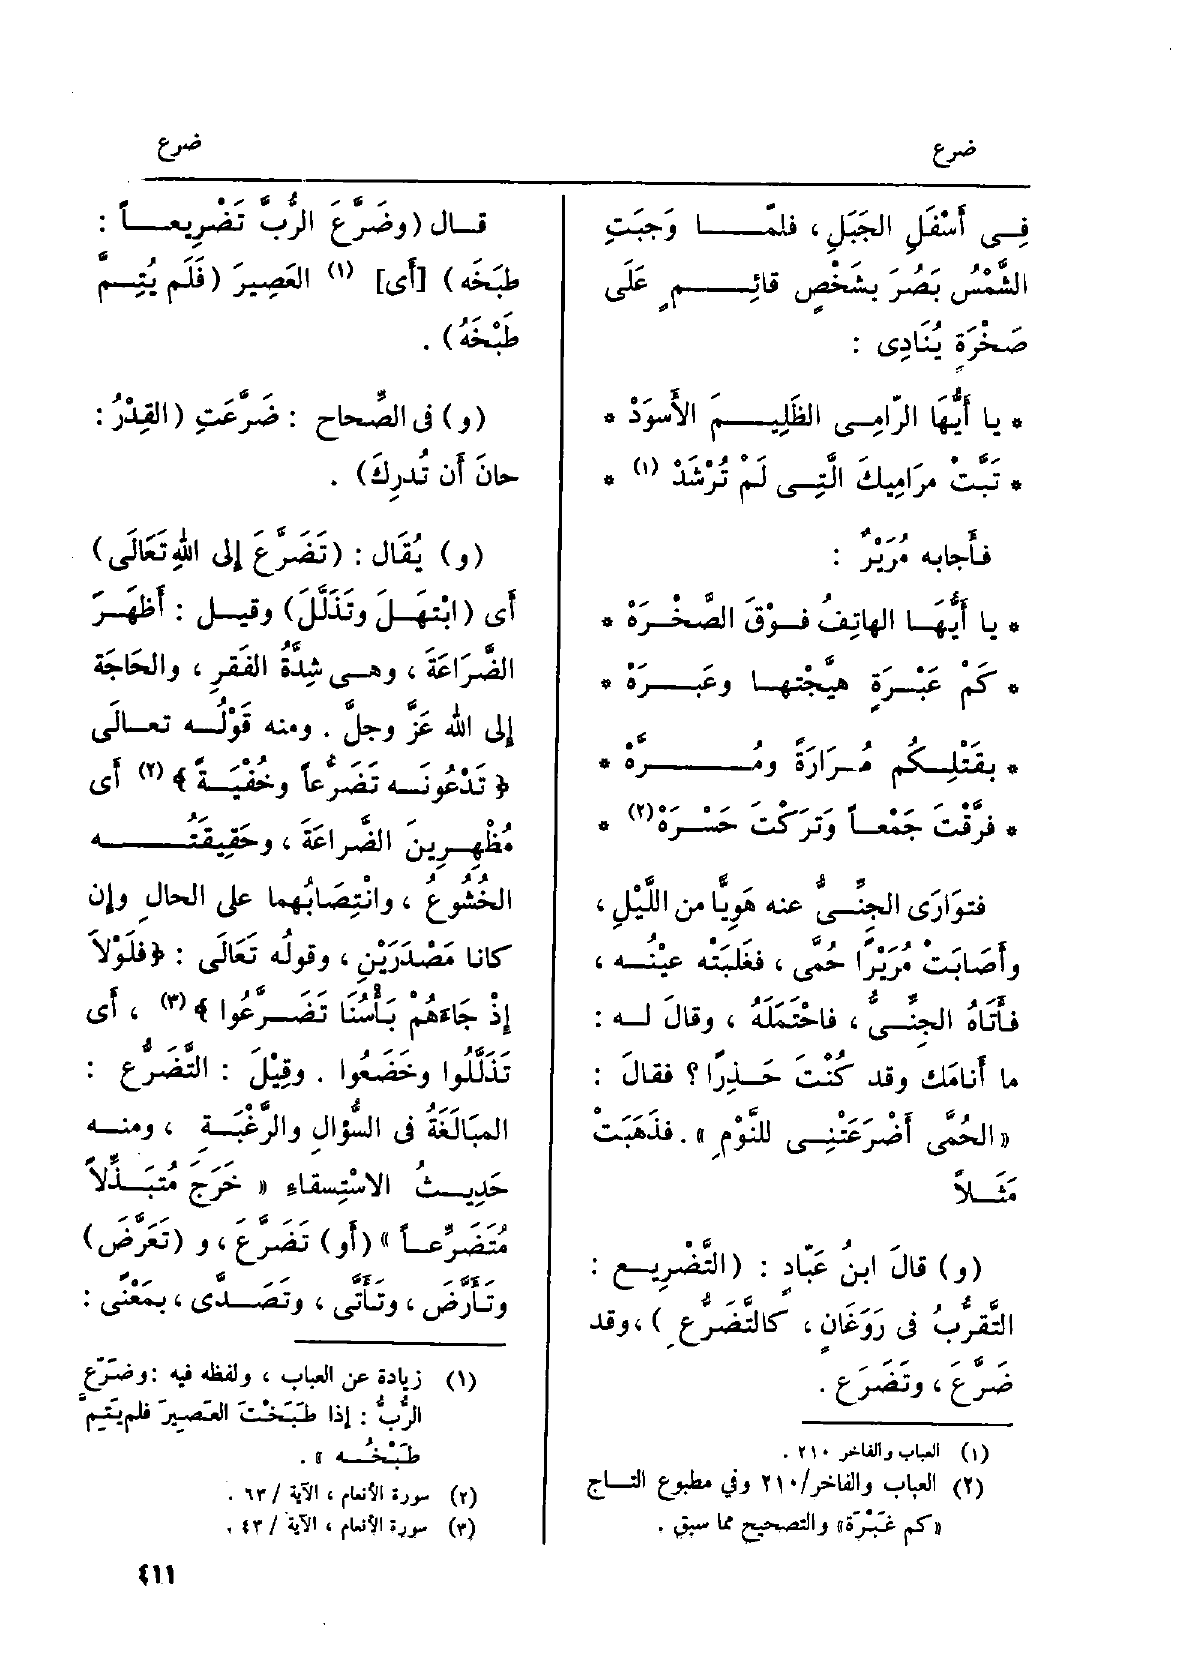 ضرع
ضرع
فِـى أَسْفَلِ الجَبَلِ ، فلمَّــا وَجَبَتِ
الشَّمْسُ بَصُرَ بشَخْصٍ قائِــمٍ عَلَى
صَخْرَةٍ يُنَادِى :
* يا أَيُّهَا الرّامِـى الظَلِيــمَ الأَسوَدْ *
* تَبَّتْ مرَامِيكَ الَّتِـى لَمْ تُرْشَدْ (١) *
فأَجابه مُرَيْرٌ :
* يا أَيُّهَـا الهاتِفُ فـوْقَ الصَّخْـرَهْ *
* كَمْ عَبْـرَةٍ هيَّجْتهـا وعَبـــرَهْ *
* بقَتْلِـكُم مُـرَارَةً ومُـــرَّهْ *
* فرَّقْتَ جَمْعـاً وَترَكْتَ حَسْـرَهْ (٢) *
فتوَارَى الجِنِّــىُّ عنه هَوِيًّا من اللَّيْلِ ،
وأَصَابَتْ مُرَيْرًا حُمَّى ، فغَلبَتْه عيْنُــه ،
فأَتَاهُ الجِنِّــىُّ ، فاحْتَمَلَهُ ، وقالَ لــه :
ما أَنامَك وقد كُنْتَ حَــذِرًا ؟ فقالَ :
« الحُمَّى أَضْرَعَتْنِــى للنَّوْمِ ». فذَهَبَتْ
مَثَــلاً
(و) قالَ ابنُ عَبّادٍ : (التَّضْرِيــع :
التَّقرُّبُ فى رَوَغَانٍ ، كالتَّضَرُّعِ ) ، وقد
ضَرَّعَ ، وتَضَرَع .
(١) العباب والفاخر ٢١٠ .
(٢) العباب والفاخر/٢١٠ وفي مطبوع التــاج
«كم غَبْرَة» والتصحيح مما سبق .
قــال (وضَرَّعَ الرُّبَّ تَضْرِيعــاً :
طبَخَه ) [أَى] (١) العَصِيرَ (فَلَم يُتِــمَّ
طَبْخَهُ) .
(و) فى الصِّحاح : ضَرَّعَتِ (القِدْرُ :
حانَ أَن تُدرِكَ) .
(و) يُقَال : (تَضَرَّعَ إلى اللهِ تَعَالَى)
أَى (ابْتهَـلَ وتَذَلَّلَ) وقيــل : أَظهَـرَ
الضَّرَاعَةَ ، وهــى شِدَّةُ الفَقرِ ، والحَاجَة
إلى الله عَزَّ وجلَّ . ومنه قَوْلُــه تعــالَى
﴿ تَدْعُونَــه تَضَرُّعاً وخُفْيَــةً ﴾ (٢) أَى
مُظْهِـرِينَ الضَّراعَةَ ، وحَقِيقَتُــه
الخُشُوعُ ، وانْتِصَابُهما على الحالِ وإن
كانا مَصْدَرَيْنِ ، وقولُه تَعَالَى : ﴿فلَوْلاَ
إذْ جَاءَهُمْ بَأْسُنَا تَضَــرَّعُوا ﴾ (٣) ، أَى
تَذَلَّلُوا وخَضَعُوا . وقِيْلَ : التَّضَرُّع :
المبَالَغَةُ فى السُّؤالِ والرَّغْبَــةِ ، ومنــه
حَدِيــثُ الاسْتِسقاءِ « خَرَجَ مُتبَــذِّلاً
مُتَضَرِّعــاً » (أَو) تَضَرَّعَ ، و (تَعَرَّضَ)
وتــأَرَّضَ ، وتَأَتَّى ، وتَصَــدَّى ، بمَعْنًى :
(١) زيادة عن العباب ، ولفظه فيه : وضَرّع
الرُّبُّ : إذا طَبَخْتَ العَصيرَ فلم يَتِمَّ
طَبْخُــه » .
(٢) سورة الأنعام ، الآية / ٦٣ .
(٣) سورة الأنعام ، الآية / ٤٣ .
٤١١